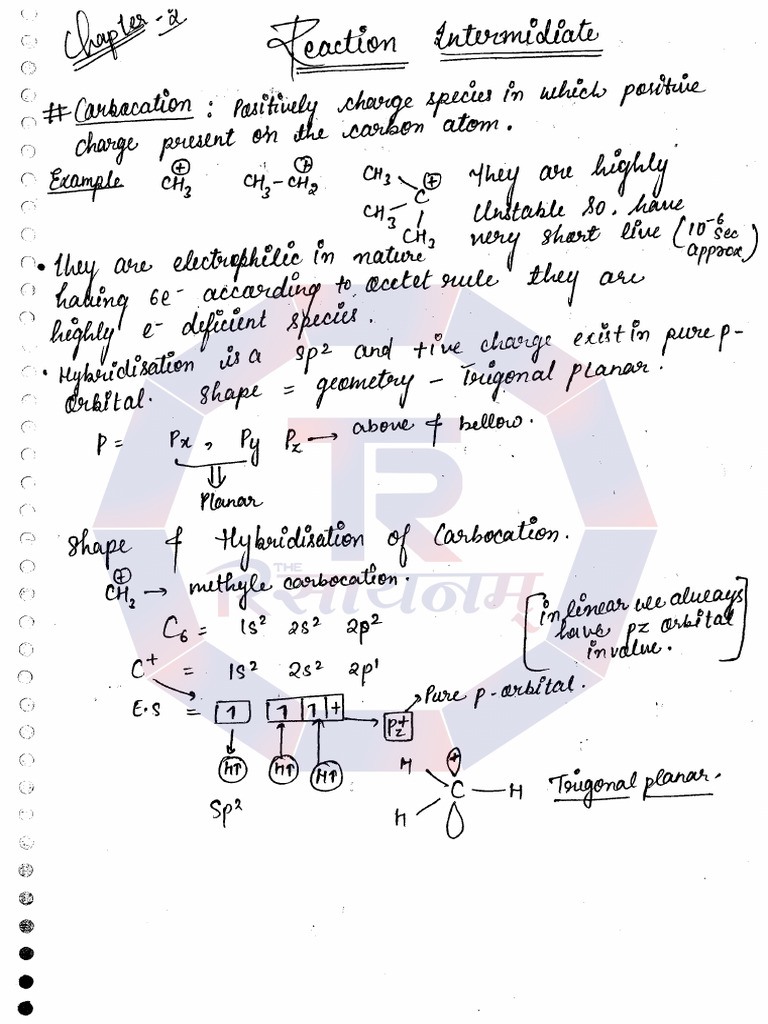 Chapter-2
Reaction Intermidiate
# Carbocation : Positively charge species in which positive
charge present on the carbon atom.
Example CH3⊕ CH3-CH2⊕ CH3 CH3 CH3 C⊕ They are highly
Unstable so. have
very short live (10^-6 sec approx)
• They are electrophilic in nature
having 6e- according to ocetet rule they are
highly e- deficient species.
• Hybridisation is a sp2 and +ive charge exist in pure p-
orbital. Shape = geometry - Trigonal planar.
P = Px, Py Pz → above & bellow.
⇓
Planar
Shape & Hybridisation of Carbocation.
CH3⊕ → methyle carbocation.
THE
रिसायनम्
TR
[in linear we always
have pz orbital
involve.]
C6 = 1s2 2s2 2p2
C+ = 1s2 2s2 2p1
E.S = 1 1 1 + → Pz+ → Pure p-orbital.
H↑ H↑ H↑
Sp2
H H C H + Trigonal planar.